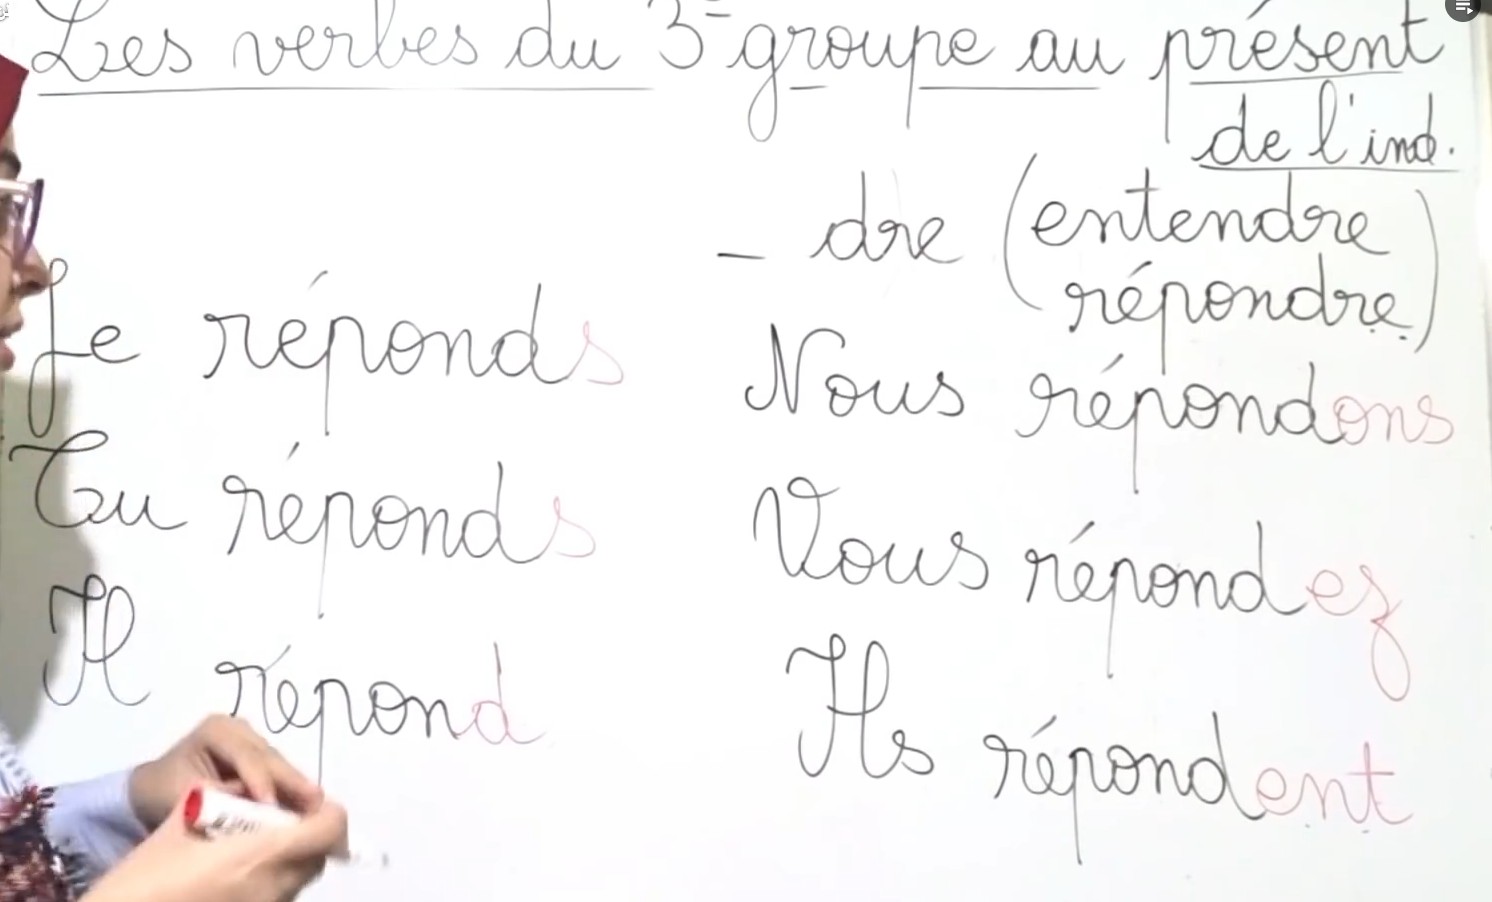 Les verbes du 3e groupe au présent
de l'ind.
- dre (entendre
répondre)
Je réponds
Tu réponds
Il répond
Nous répondons
Vous répondez
Ils répondent